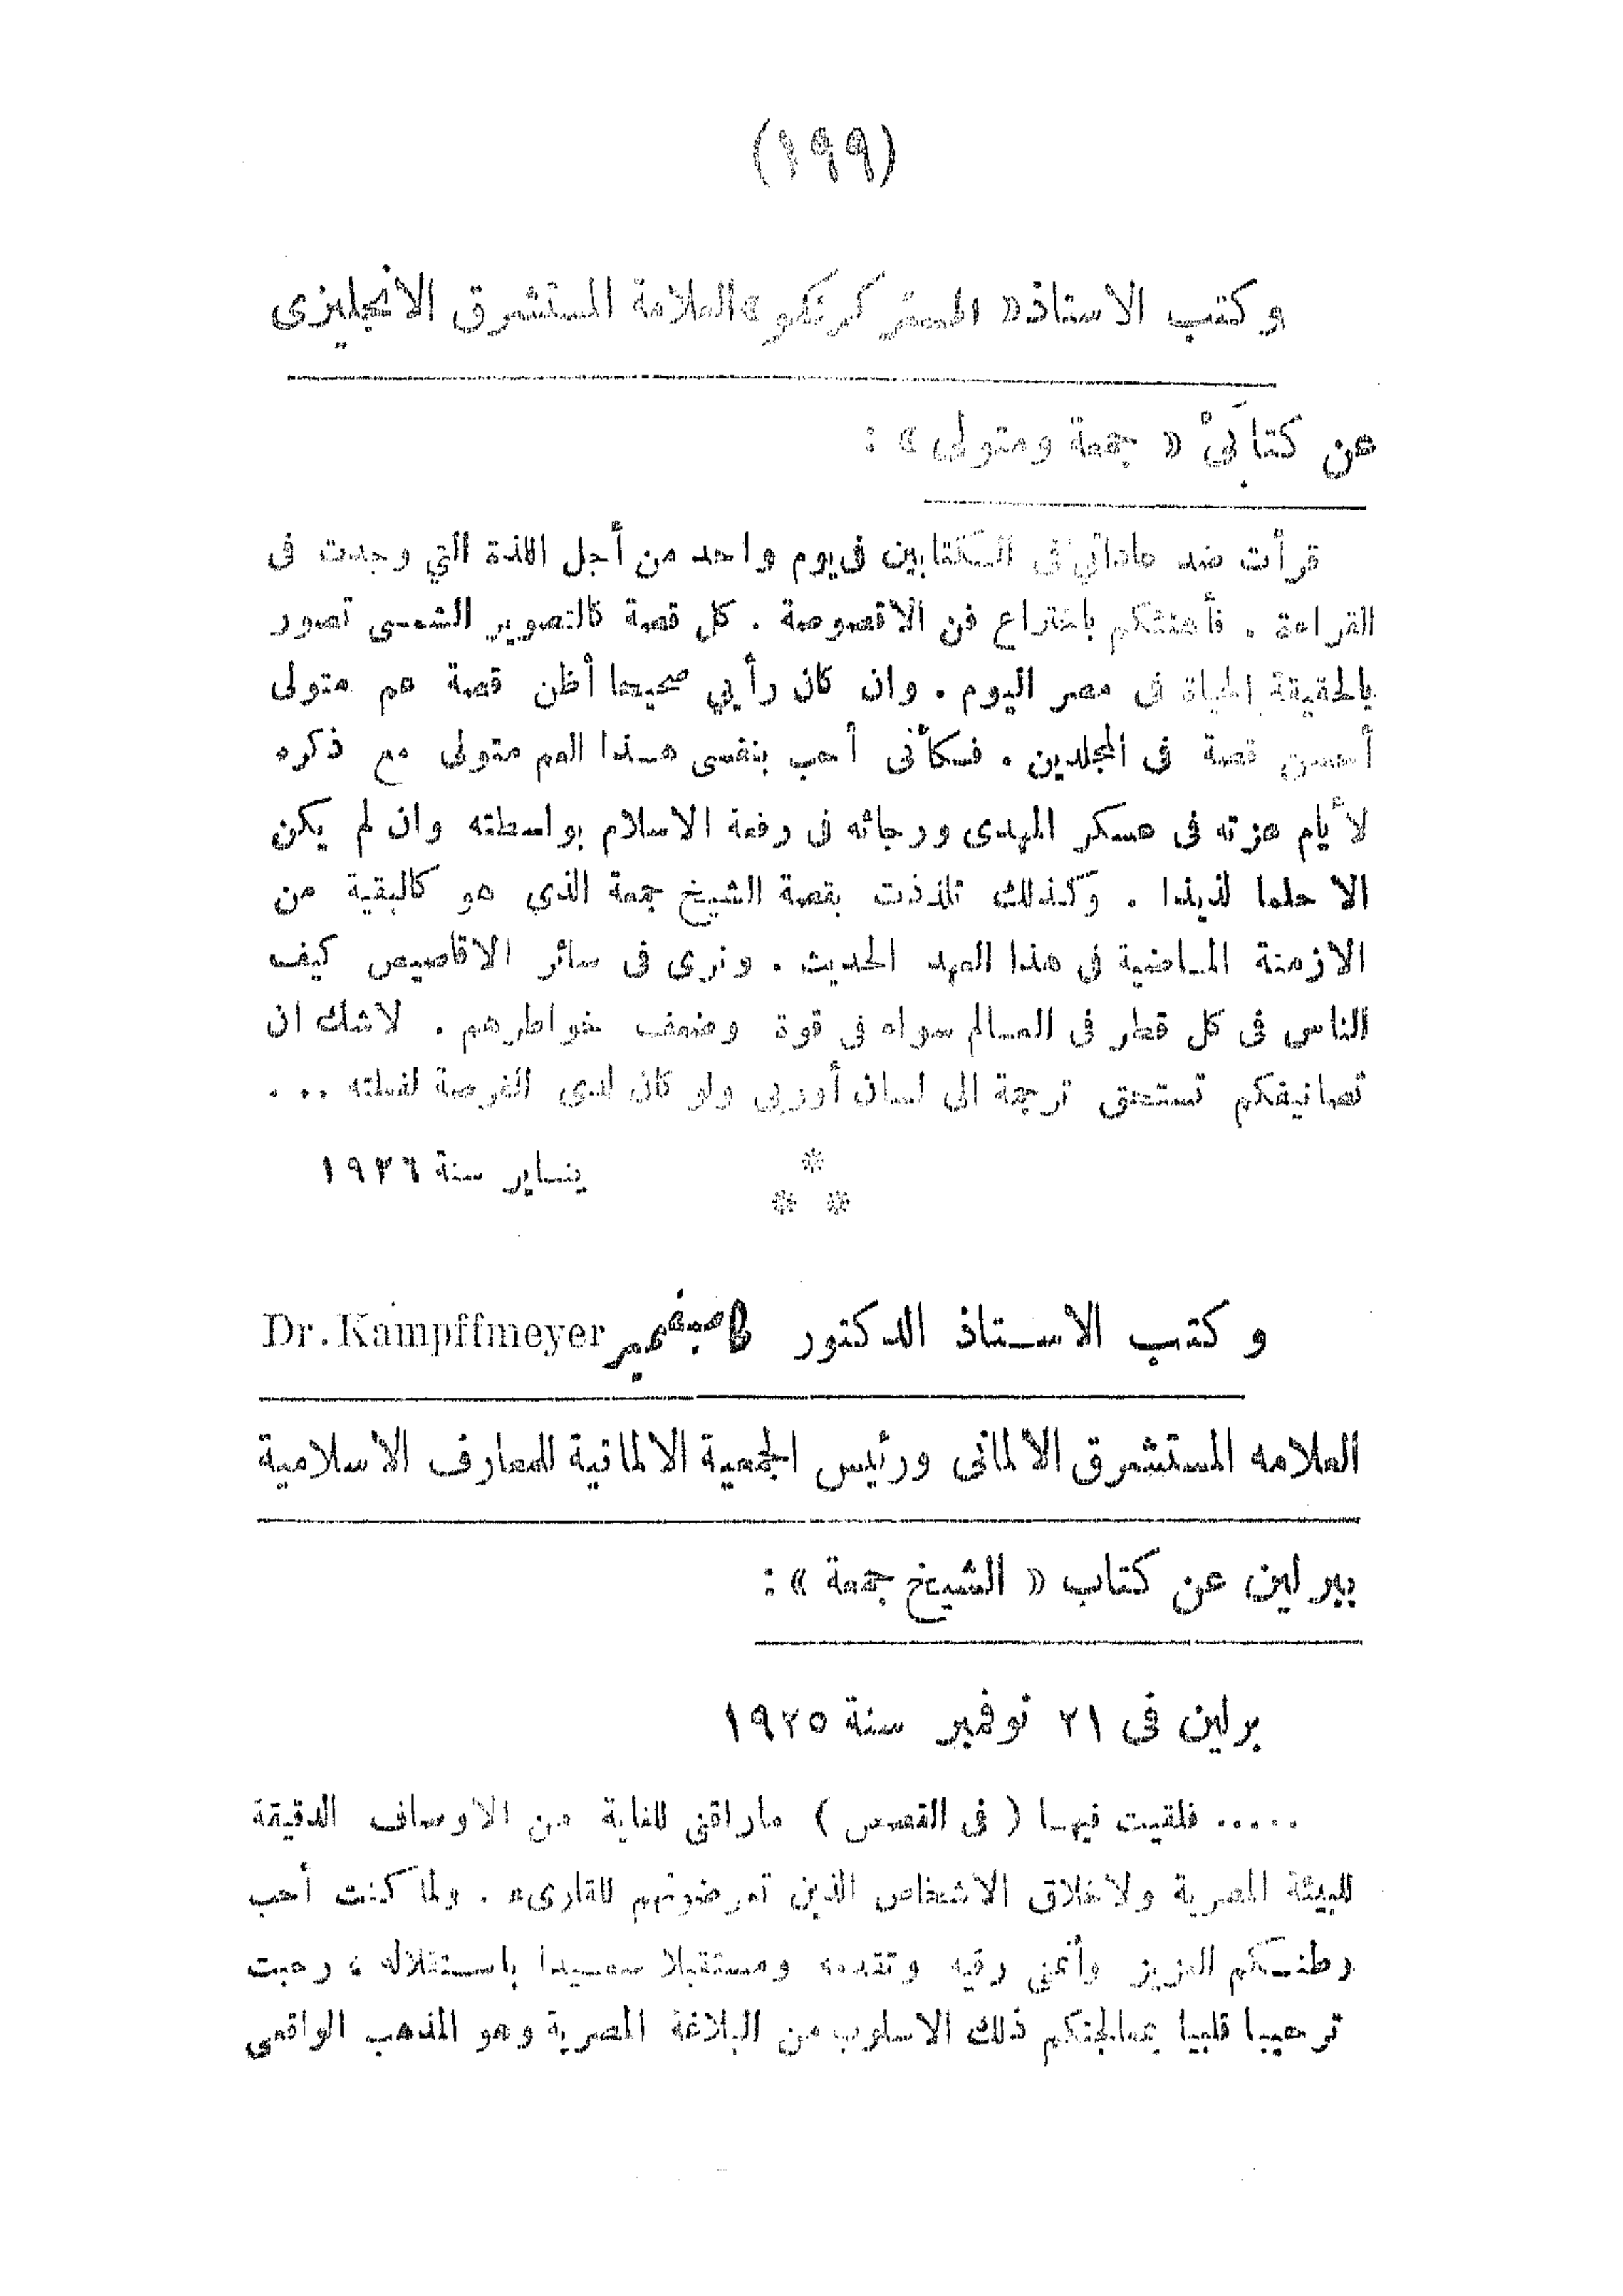 (١٩٩)
وكتب الاستاذ « المستر كرنكو » العلامة المستشرق الانجليزى
عن كتابَىْ « جمعة ومتولى » :
قرأت ضد عاداتي فى الكتابين فى يوم واحد من أجل اللذة التي وجدت فى
القراءة . فأهنئكم باختراع فن الاقصوصة . كل قصة كالتصوير الشمسى تصور
بالحقيقة الحياة فى مصر اليوم . وان كان رأيي صحيحا أظن قصة عم متولى
أحسن قصة فى المجلدين . فكأنى أحب بنفسى هذا العم متولى مع ذكره
لأيام عزته فى عسكر المهدى ورجائه فى رفعة الاسلام بواسطته وان لم يكن
الا حلما لذيذا . وكذلك تلذذت بقصة الشيخ جمعة الذى هو كالبقية من
الازمنة الماضية فى هذا العهد الحديث . ونرى فى سائر الاقاصيص كيف
الناس فى كل قطر فى العالم سواء فى قوة وضعف خواطرهم . لاشك ان
تصانيفكم تستحق ترجمة الى لسان أوربى ولو كان لدى الفرصة لفعلته ...
يناير سنة ١٩٢٦
*
* *
وكتب الاستاذ الدكتور كامبفمير Dr. Kampffmeyer
العلامه المستشرق الالمانى ورئيس الجمعية الالمانية للمعارف الاسلامية
ببرلين عن كتاب « الشيخ جمعة » :
برلين فى ٢١ نوفمبر سنة ١٩٢٥
..... فلقيت فيها ( فى القصص ) ماراقنى للغاية من الاوصاف الدقيقة
للبيئة المصرية ولاخلاق الاشخاص الذين تعرضونهم للقارىء . ولما كنت أحب
وطنكم العزيز وأتمنى رقيه وتقدمه ومستقبلا سعيدا باستقلاله ، رحبت
ترحيبا قلبيا بمعالجتكم ذلك الاسلوب من البلاغة المصرية وهو المذهب الواقعى